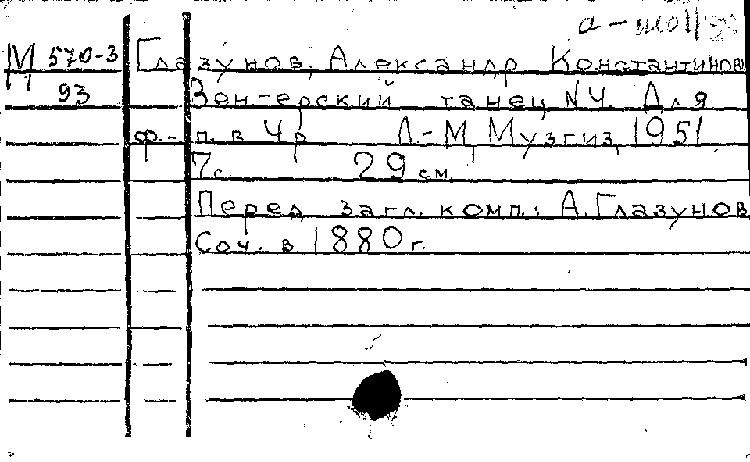 a-moll
М 570-3 Глазунов, Александр Константинович
93 Венгерский танец №4. Для
ф.-п. в 4 р. Л.-М, Музгиз, 1951.
7 с. 29 см.
Перед загл. комп.: А. Глазунов
Соч. в 1880 г.